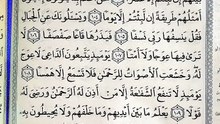 أَمْثَلُهُمْ طَرِيقَةً إِن لَّبِثْتُمْ إِلَّا يَوْمًا ١٠٤ وَيَسْـَٔلُونَكَ عَنِ ٱلْجِبَالِ
فَقُلْ يَنسِفُهَا رَبِّى نَسْفًا ١٠٥ فَيَذَرُهَا قَاعًا صَفْصَفًا ١٠٦ لَّا
تَرَىٰ فِيهَا عِوَجًا وَلَآ أَمْتًا ١٠٧ يَوْمَئِذٍ يَتَّبِعُونَ ٱلدَّاعِىَ لَا عِوَجَ
لَهُۥ وَخَشَعَتِ ٱلْأَصْوَاتُ لِلرَّحْمَٰنِ فَلَا تَسْمَعُ إِلَّا هَمْسًا ١٠٨
يَوْمَئِذٍ لَّا تَنفَعُ ٱلشَّفَٰعَةُ إِلَّا مَنْ أَذِنَ لَهُ ٱلرَّحْمَٰنُ وَرَضِىَ لَهُۥ
قَوْلًا ١٠٩ يَعْلَمُ مَا بَيْنَ أَيْدِيهِمْ وَمَا خَلْفَهُمْ وَلَا يُحِيطُونَ بِهِۦ